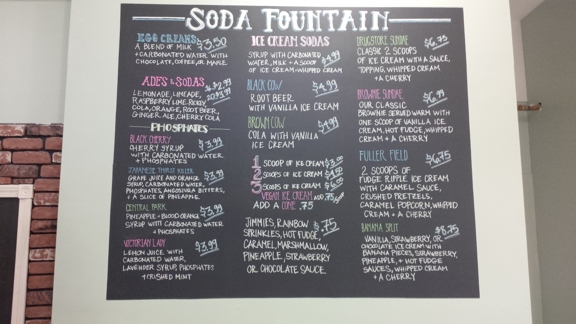 SODA FOUNTAIN
EGG CREAMS $3.50
A BLEND OF MILK
+ CARBONATED WATER WITH
CHOCOLATE, COFFEE, OR MAPLE
ADES & SODAS
LEMONADE, LIMEADE,
RASPBERRY LIME RICKEY,
COLA, ORANGE, ROOT BEER,
GINGER ALE, CHERRY COLA
PHOSPHATES
BLACK CHERRY $3.99
CHERRY SYRUP
WITH CARBONATED WATER
+ PHOSPHATES
JAPANESE THIRST KILLER $3.99
GRAPE JUICE AND ORANGE
SYRUP, CARBONATED WATER,
PHOSPHATES, ANGOSTURA BITTERS,
+ A SLICE OF PINEAPPLE
CENTRAL PARK $3.99
PINEAPPLE + BLOOD ORANGE
SYRUP WITH CARBONATED WATER
+ PHOSPHATES
VICTORIAN LADY $3.99
LEMON JUICE WITH
CARBONATED WATER,
LAVENDER SYRUP, PHOSPHATES
+ CRUSHED MINT
ICE CREAM SODAS
SYRUP WITH CARBONATED $4.99
WATER, MILK + A SCOOP
OF ICE CREAM + WHIPPED CREAM
BLACK COW $4.99
ROOT BEER
WITH VANILLA ICE CREAM
BROWN COW $4.99
COLA WITH VANILLA
ICE CREAM
1 SCOOP OF ICE CREAM $3.00
2 SCOOPS OF ICE CREAM
3 SCOOPS OF ICE CREAM
VEGAN ICE CREAM ADD .75
ADD A CONE .75
JIMMIES, RAINBOW $.75
SPRINKLES, HOT FUDGE,
CARAMEL, MARSHMALLOW,
PINEAPPLE, STRAWBERRY
OR CHOCOLATE SAUCE.
DRUGSTORE SUNDAE $6.75
CLASSIC 2 SCOOPS
OF ICE CREAM WITH A SAUCE,
TOPPING, WHIPPED CREAM
+ A CHERRY
BROWNIE SUNDAE $6.99
OUR CLASSIC
BROWNIE SERVED WARM WITH
ONE SCOOP OF VANILLA ICE
CREAM, HOT FUDGE, WHIPPED
CREAM + A CHERRY
FULLER FIELD $6.75
2 SCOOPS OF
FUDGE RIPPLE ICE CREAM
WITH CARAMEL SAUCE,
CRUSHED PRETZELS,
CARAMEL POPCORN, WHIPPED
CREAM + A CHERRY
BANANA SPLIT $8.75
VANILLA, STRAWBERRY, OR
CHOCOLATE ICE CREAM WITH
BANANA PIECES, STRAWBERRY,
PINEAPPLE, + HOT FUDGE
SAUCES, WHIPPED CREAM
+ A CHERRY